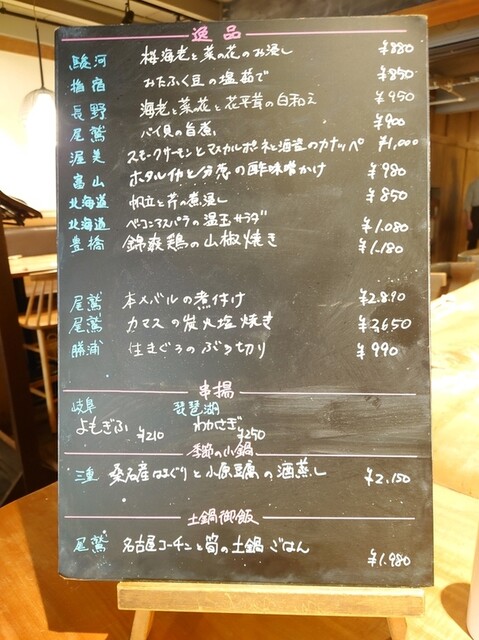 逸品
駿河 桜海老と菜の花のお浸し ¥880
指宿 おたふく豆の塩茹で ¥850
長野 海老と菜花と花平茸の白和え ¥950
尾鷲 バイ貝の旨煮 ¥900
渥美 スモークサーモンとマスカルポーネと海苔のカナッペ ¥1,000
富山 ホタルイカと分葱の酢味噌かけ ¥980
北海道 帆立と芹の煮浸し ¥850
北海道 ベーコンアスパラの温玉サラダ ¥1,080
豊橋 錦爽鶏の山椒焼き ¥1,180
尾鷲 本メバルの煮付け ¥2,890
尾鷲 カマスの炭火塩焼き ¥2,650
勝浦 生まぐろのぶつ切り ¥990
串揚
岐阜 琵琶湖
よもぎふ ¥210 わかさぎ ¥250
季節の小鍋
三重 桑名産はまぐりと小原豆腐の酒蒸し ¥2,150
土鍋御飯
尾鷲 名古屋コーチンと筍の土鍋ごはん ¥1,980